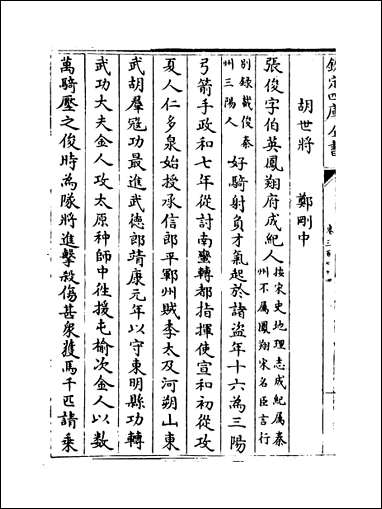 欽定四庫全書
卷三百
胡世將　鄭剛中
張俊字伯英鳳翔府成紀人按宋史地理志成紀屬秦
州不屬鳳翔宋名臣言行
别錄載俊秦
州三陽人好騎射負才氣起於諸盜年十六為三陽
弓箭手政和七年從討南蠻轉都指揮使宣和初從攻
夏人仁多泉始授承信郎平鄆州賊李太及河朔山東
武胡羣寇功最進武德郎靖康元年以守東明縣功轉
武功大夫金人攻太原种師中徃援屯榆次金人以數
萬騎壓之俊時為隊將進擊殺傷甚衆獲馬千匹請乗